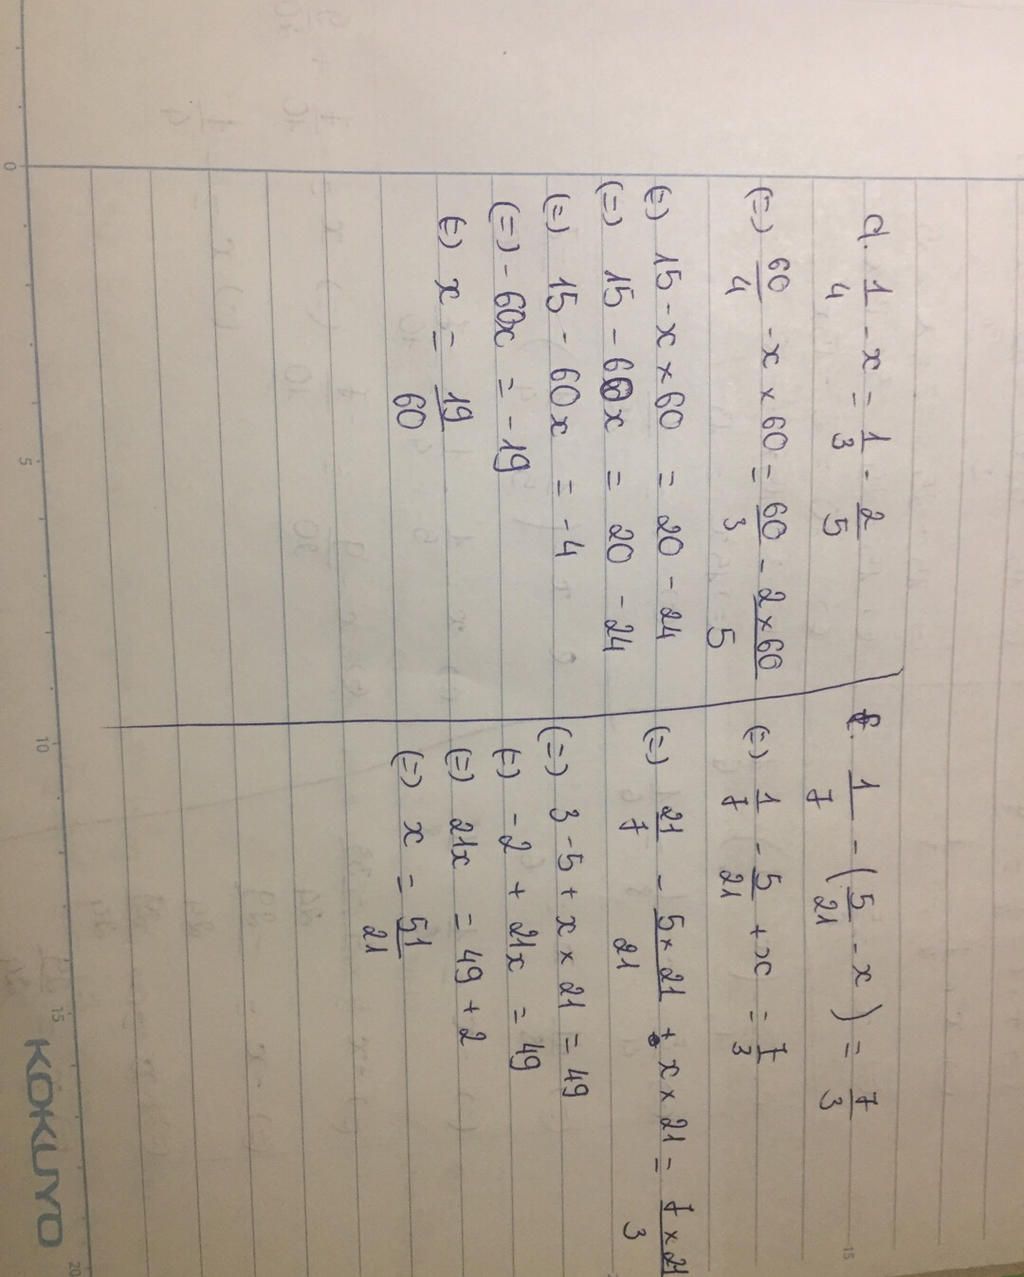 d. 1/4 - x = 1/3 - 2/5
(=) 60/4 - x × 60 = 60/3 - 2×60/5
(=) 15 - x × 60 = 20 - 24
(=) 15 - 60x = 20 - 24
(=) 15 - 60x = -4
(=) -60x = -19
(=) x = 19/60
f. 1/7 - (5/21 - x) = 7/3
(=) 1/7 - 5/21 + x = 7/3
(=) 21/7 - 5×21/21 + x × 21 = 7×21/3
(=) 3 - 5 + x × 21 = 49
(=) -2 + 21x = 49
(=) 21x = 49 + 2
(=) x = 51/21
0
5
10
15
20
15
KOKUYO